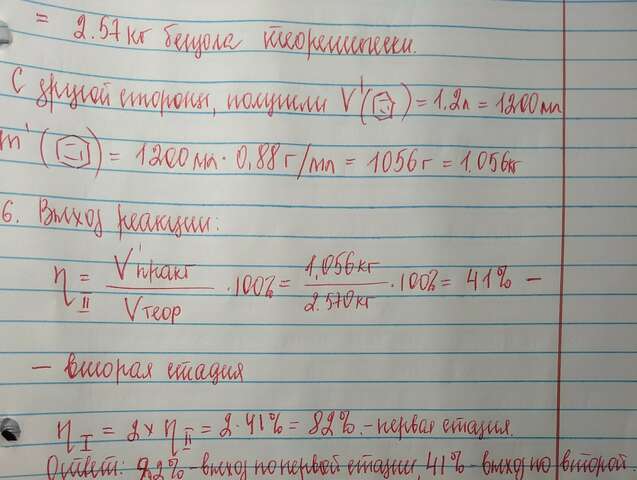 = 2.57кг бензола теоретически.
С другой стороны, получили V'(⌬) = 1.2л = 1200мл
m'(⌬) = 1200мл · 0,88г/мл = 1056г = 1.056кг
6. Выход реакции:
η II = V'практ / Vтеор · 100% = 1,056кг / 2.570кг · 100% = 41% –
– вторая стадия
η I = 2 × η II = 2 · 41% = 82%. – первая стадия.
Ответ: 82% – выход по первой стадии, 41% – выход по второй.